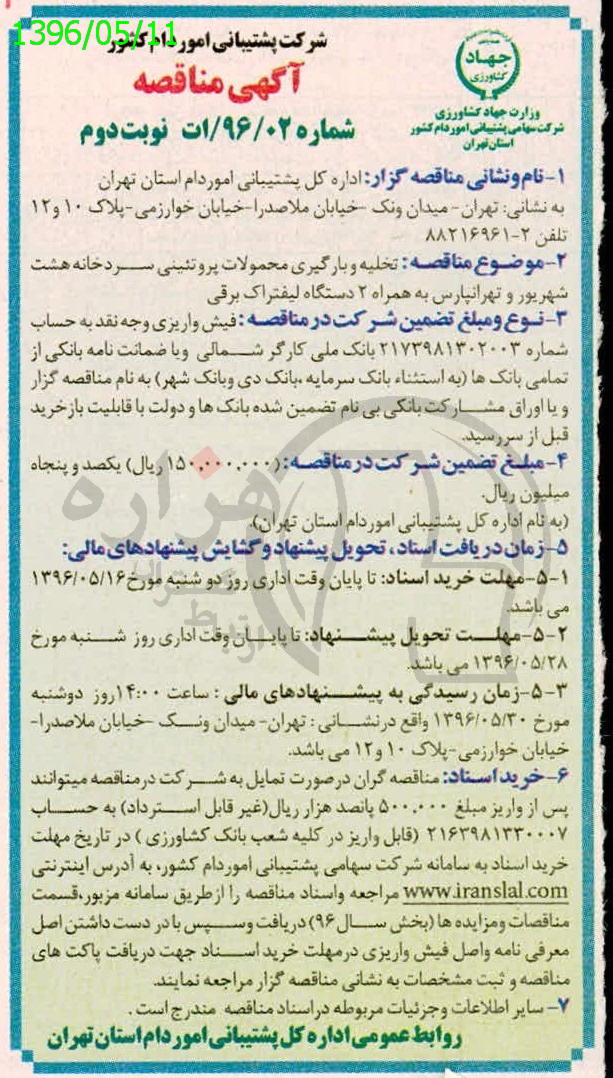 1396/05/11
شرکت پشتیبانی امور دام کشور
آگهی مناقصه
شماره ۹۶/۰۲/ات نوبت دوم
جهاد
کشاورزی
وزارت جهاد کشاورزی
شرکت سهامی پشتیبانی امور دام کشور
استان تهران
۱-نام ونشانی مناقصه گزار: اداره کل پشتیبانی اموردام استان تهران
به نشانی: تهران- میدان ونک -خیابان ملاصدرا-خیابان خوارزمی-پلاک ۱۰ و۱۲
تلفن ۲-۸۸۲۱۶۹۶۱
۲-موضوع مناقصه: تخلیه و بارگیری محمولات پروتئینی سردخانه هشت
شهریور و تهرانپارس به همراه ۲ دستگاه لیفتراک برقی
۳-نوع ومبلغ تضمین شرکت در مناقصه: فیش واریزی وجه نقد به حساب
شماره ۲۱۷۳۹۸۱۳۰۲۰۰۳ بانک ملی کارگر شمالی وبا ضمانت نامه بانکی از
تمامی بانک ها (به استثناء بانک سرمایه ،بانک دی وبانک شهر) به نام مناقصه گزار
و یا اوراق مشارکت بانکی بی نام تضمین شده بانک ها و دولت با قابلیت بازخرید
قبل از سررسید.
۴-مبلغ تضمین شرکت در مناقصه: (۱۵۰,۰۰۰,۰۰۰ ریال) یکصد و پنجاه
میلیون ریال.
(به نام اداره کل پشتیبانی اموردام استان تهران).
۵-زمان دریافت اسناد، تحویل پیشنهاد و گشایش پیشنهادهای مالی:
۵-۱-مهلت خرید اسناد: تا پایان وقت اداری روز دو شنبه مورخ ۱۳۹۶/۰۵/۱۶
می باشد.
۵-۲-مهلت تحویل پیشنهاد: تا پایان وقت اداری روز شنبه مورخ
۱۳۹۶/۰۵/۲۸ می باشد.
۵-۳-زمان رسیدگی به پیشنهادهای مالی: ساعت ۱۴:۰۰روز دوشنبه
مورخ ۱۳۹۶/۰۵/۳۰ واقع درنشانی: تهران- میدان ونک -خیابان ملاصدرا-
خیابان خوارزمی-پلاک ۱۰ و۱۲ می باشد.
۶-خرید اسناد: مناقصه گران درصورت تمایل به شرکت درمناقصه میتوانند
پس از واریز مبلغ ۵۰۰,۰۰۰ پانصد هزار ریال(غیر قابل استرداد) به حساب
۲۱۶۳۹۸۱۳۳۰۰۰۷ (قابل واریز در کلیه شعب بانک کشاورزی) در تاریخ مهلت
خرید اسناد به سامانه شرکت سهامی پشتیبانی اموردام کشور، به آدرس اینترنتی
www.iranslal.com مراجعه واسناد مناقصه را ازطریق سامانه مزبور،قسمت
مناقصات ومزایده ها (بخش سال ۹۶) دریافت وسپس با در دست داشتن اصل
معرفی نامه واصل فیش واریزی درمهلت خرید اسناد جهت دریافت پاکت های
مناقصه و ثبت مشخصات به نشانی مناقصه گزار مراجعه نمایند.
۷- سایر اطلاعات وجزئیات مربوطه دراسناد مناقصه مندرج است.
روابط عمومی اداره کل پشتیبانی امور دام استان تهران
هزاره